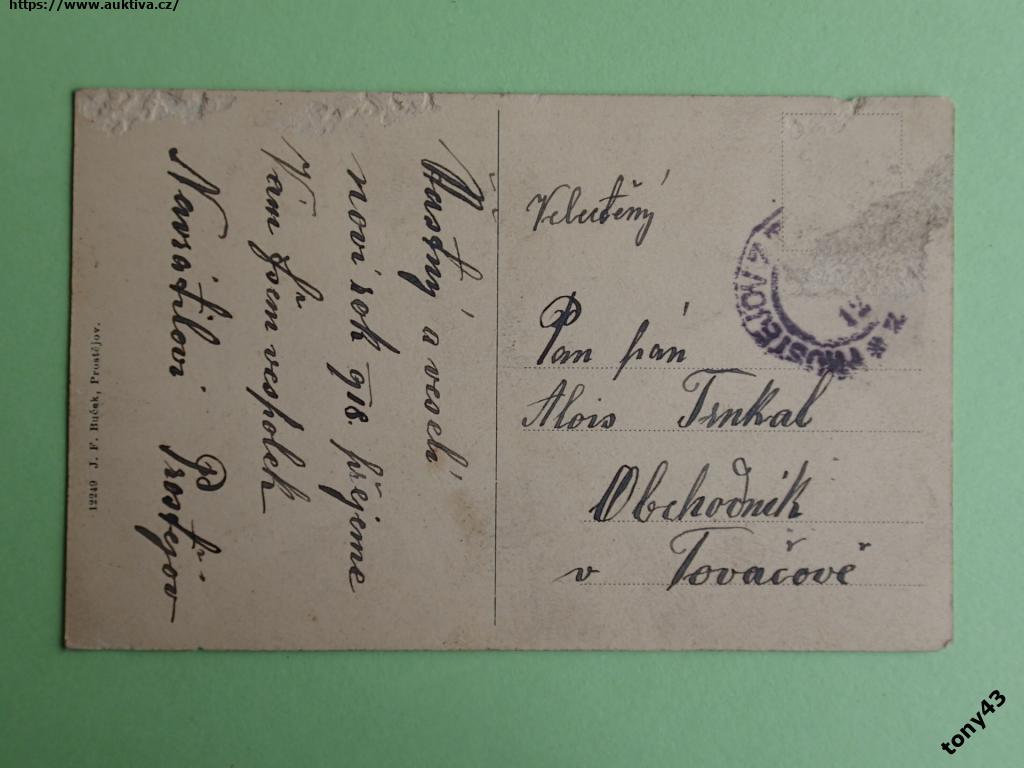 https://www.auktiva.cz/
Šťastný a veselí
noví rok 918. přejeme
Vám všem vespolek
Navrátilovi Prostějov
12249 J. F. Buček, Prostějov.
Veluctěný
Pan pán
Alois Trnkal
Obchodnik
v Tovačově
* PROSTĚJOV 2 *
12
2
tony43